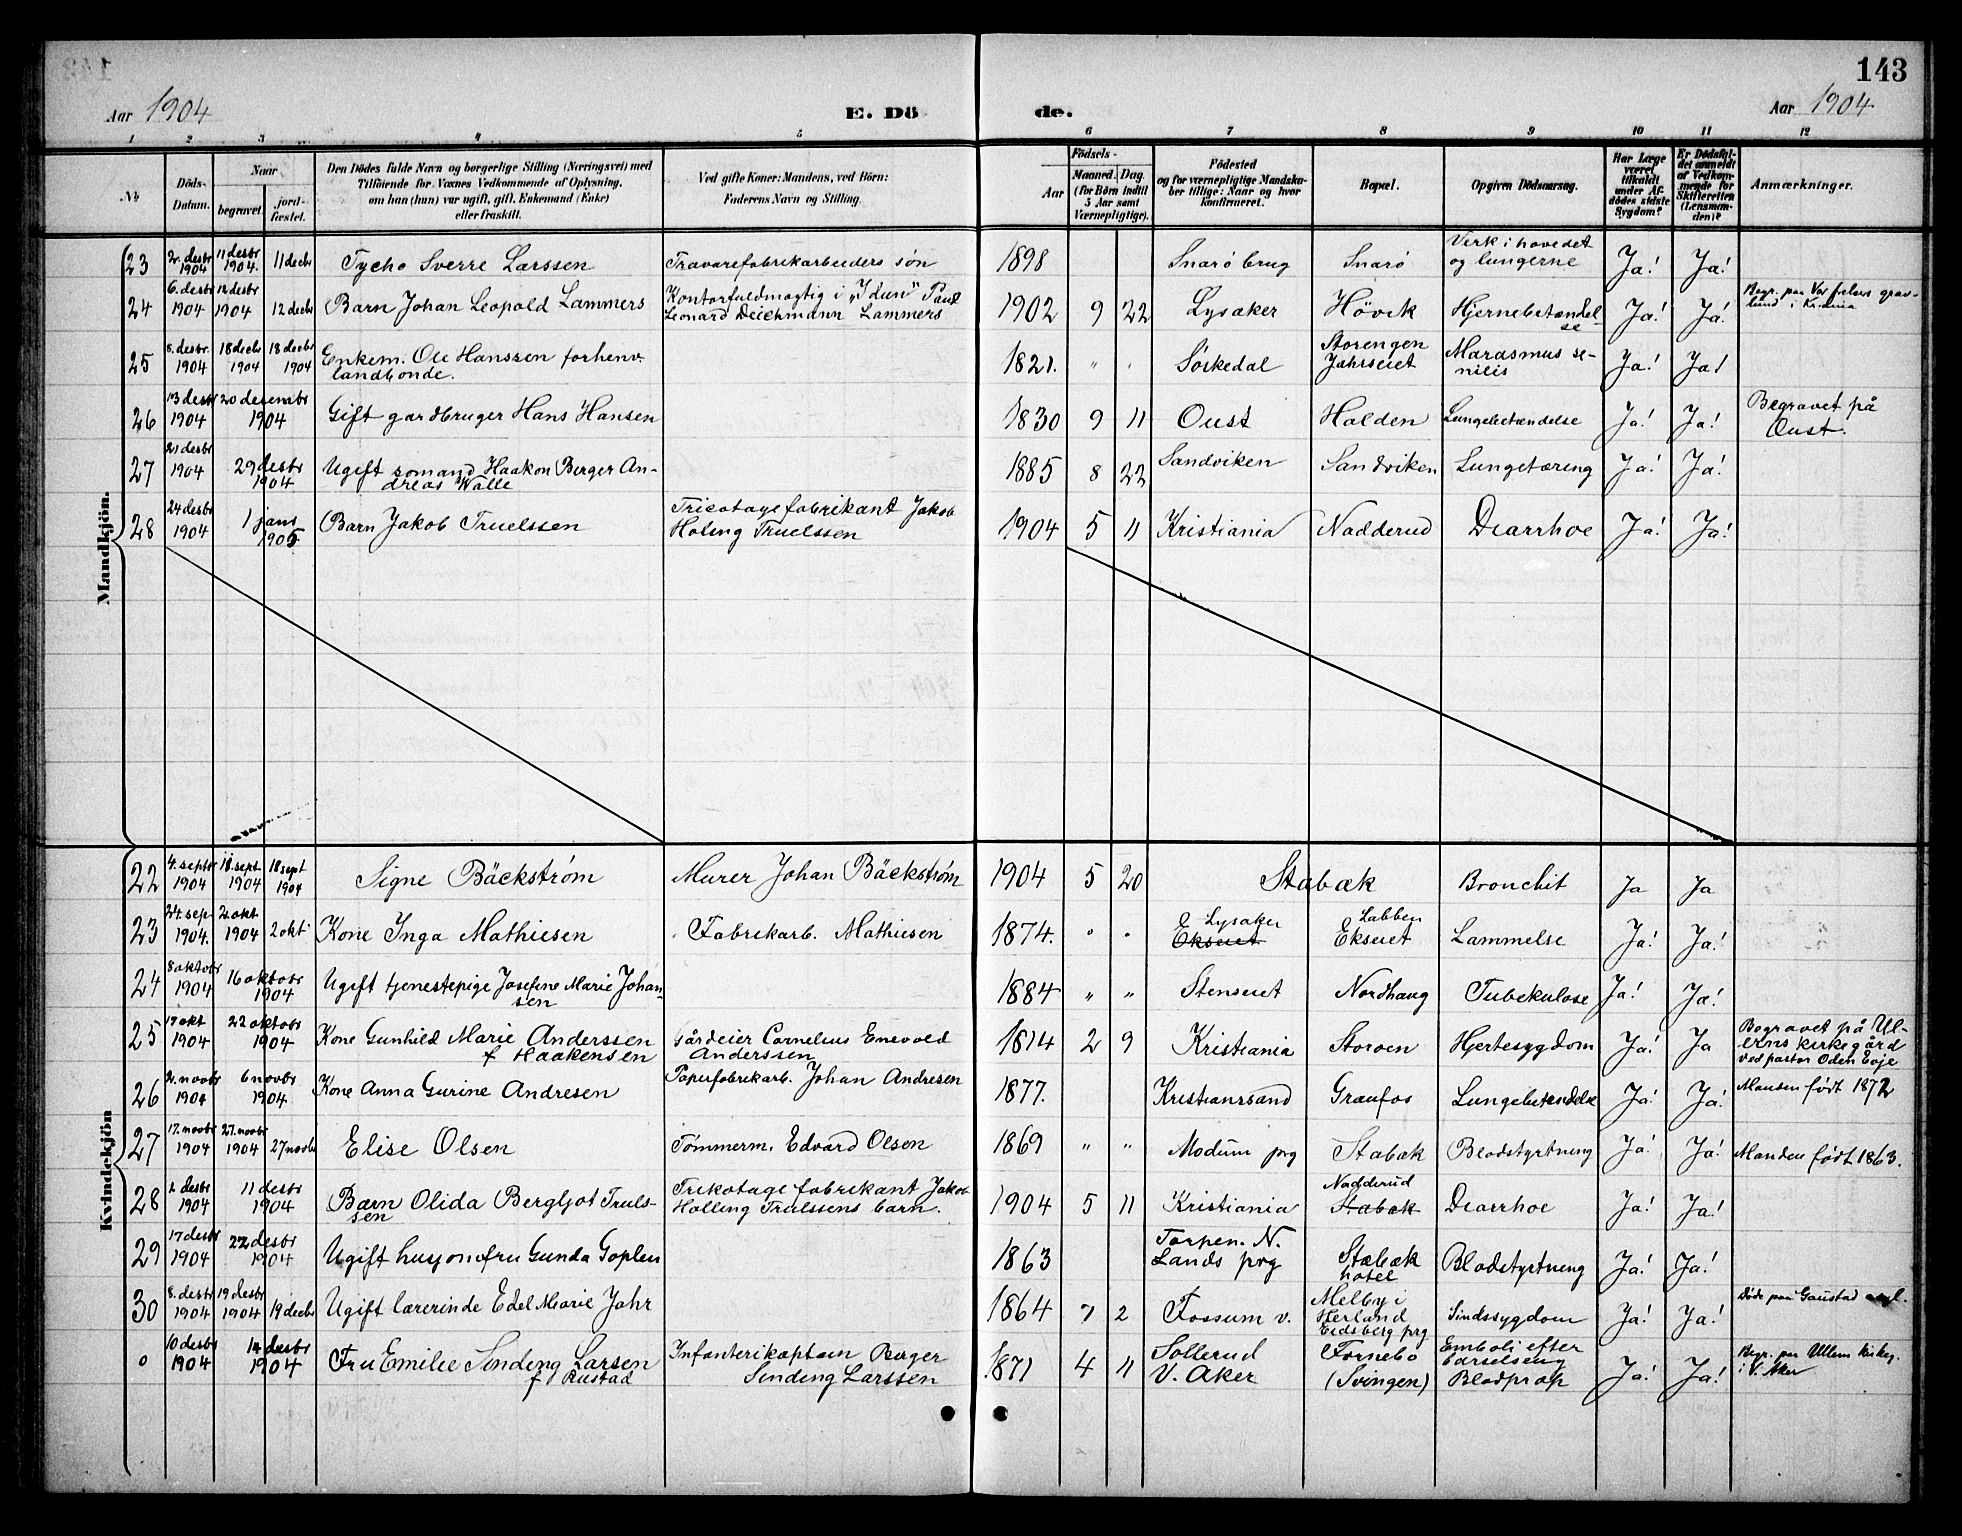 143
Aar 1904
E. Dö
de.
Aar 1904
1 2 3 4 5 6 7 8 9 10 11 12
№
Döds-
Datum.
Naar
begravet.
jord-
fæstet.
Den Dödes fulde Navn og borgerlige Stilling (Næringsvei) med
Tilföiende for Voxnes Vedkommende af Oplysning,
om han (hun) var ugift, gift, Enkemand (Enke)
eller fraskilt.
Ved gifte Koner: Mandens, ved Börn:
Faderens Navn og Stilling.
Födsels-
Aar
Maaned. Dag.
(for Börn indtil
5 Aar samt
Værnepligtige).
Födested
og for værnepligtige Mandska-
ber tillige: Naar og hvor
konfirmeret.
Bopæl.
Opgiven Dödsaarsag.
Har Læge
været
tilkaldt
under Af-
dödes sidste
Sygdom?
Er Dödsfal-
det anmeldt
af Vedkom-
mende for
Skifteretten
(Lensman-
den)?
Anmærkninger.
Mandkjön.
23 2. desbr 1904 11 desbr 1904. 11 decbr Tycho Sverre Larssen Travarefabrikarbeiders søn 1898 Snarö brug Snarö Verk i hovedet og lungerne Ja! Ja!
24 6. desbr 1904 12 desbr 1904 12 decbr Barn Johan Leopold Lammers Kontorfuldmægtig i "Idun" Paul Leonard Deichmann Lammers 1902 9 22 Lysaker Hövik Hjernebetændelse Ja! Ja! Begr. paa Vor frelsers gravlund i Kristiania
25 8. desbr. 1904 18 decbr 1904 18 decbr 1904 Enkem. Ole Hanssen forhenv. landbonde. 1821. " " Sörkedal Storengen Jahrseiet Marasmus senilis Ja! Ja!
26 13 desbr 1904 20 desember 1904 Gift gardbruger Hans Hansen 1830 9 11 Oust Holden Lungebetændelse Ja! Ja! Begravet på Oust.
27 21 desbr 1904 29 desbr 1904 Ugift sømand Haakon Berger Andreas Walle 1885 8 22 Sandviken Sandviken Lungetæring Ja! Ja!
28 24 desbr 1904 1 janr 1905 Barn Jakob Truelssen Tricotagefabrikant Jakob Holing Truelssen 1904 5 11 Kristiania Nadderud Diarrhoe Ja! Ja!
Kvindekjön
22 4. septbr 1904 18. sept 1904 18 sept 1904 Signe Bäckstrøm Murer Johan Bäckstrøm 1904 5 20 Stabæk Bronchit Ja Ja
23 24. sep. 1904. 2. okt 1904 2 okt Kone Inga Mathiesen Fabrikarb. Mathiesen 1874. " " Lysaker Ekseiet Labben Ekseiet Lammelse Ja! Ja!
24 8 oktobr 1904 16 oktobr 1904 Ugift tjenestepige Josefine Marie Johansen 1884 " " Stenseiet Nordhaug Tubekulose Ja! Ja!
25 17 okt 1904 22 oktobr 1904 Kone Gunhild Marie Anderssen f Haakensen Gårdeier Cornelius Enevold Anderssen 1814 2 9 Kristiania Storoen Hjertesygdom Ja! Ja Begravet på Ullerns kirkegård ved pastor Oden Evje
26 2. novbr 1904 6 novbr 1904. Kone Anna Gurine Andresen Papirfabrikarb. Johan Andresen 1877. Kristianssand Granfos Lungebetændelse Ja! Ja! Mansen født 1872
27 17. novbr 1904 27. novbr 1904 27 novbr Elise Olsen Tömmerm. Edvard Olsen 1869 " " Modum prg Stabæk Blodstyrtning Ja! Ja! Manden født 1863.
28 2 desbr 1904 11 desbr 1904 Barn Olida Bergljot Trulssen Trikotagefabrikant Jakob Holling Trulssens barn. 1904 5 11 Kristiania Nadderud Stabæk Diarrhoe Ja! Ja!
29 17 desbr 1904 22 desbr 1904 Ugift husjomfru Gunda Goplen 1863 Torpen. N. Lands prg Stabæk hotel Blodstyrtning Ja! Ja!
30 8. desbr 1904 19 desbr 1904 19 decbr Ugift lærerinde Edel Marie Jahr 1864 7 2 Fossum v. Melby i Herland Eidsberg prg Sindssygdom Ja! Ja! Döde paa Gaustad asyl.
0 10 desbr 1904 14 desbr 1904 Fru Emilie Sinding Larsen f Rustad Infanterikaptein Birger Sinding Larssen 1871 4 11 Sollerud V. Aker Fornebo (Svingen) Emboli efter barselseng Blodprop Ja! Ja! Begr. paa Ullern kirkeg. i V. Aker